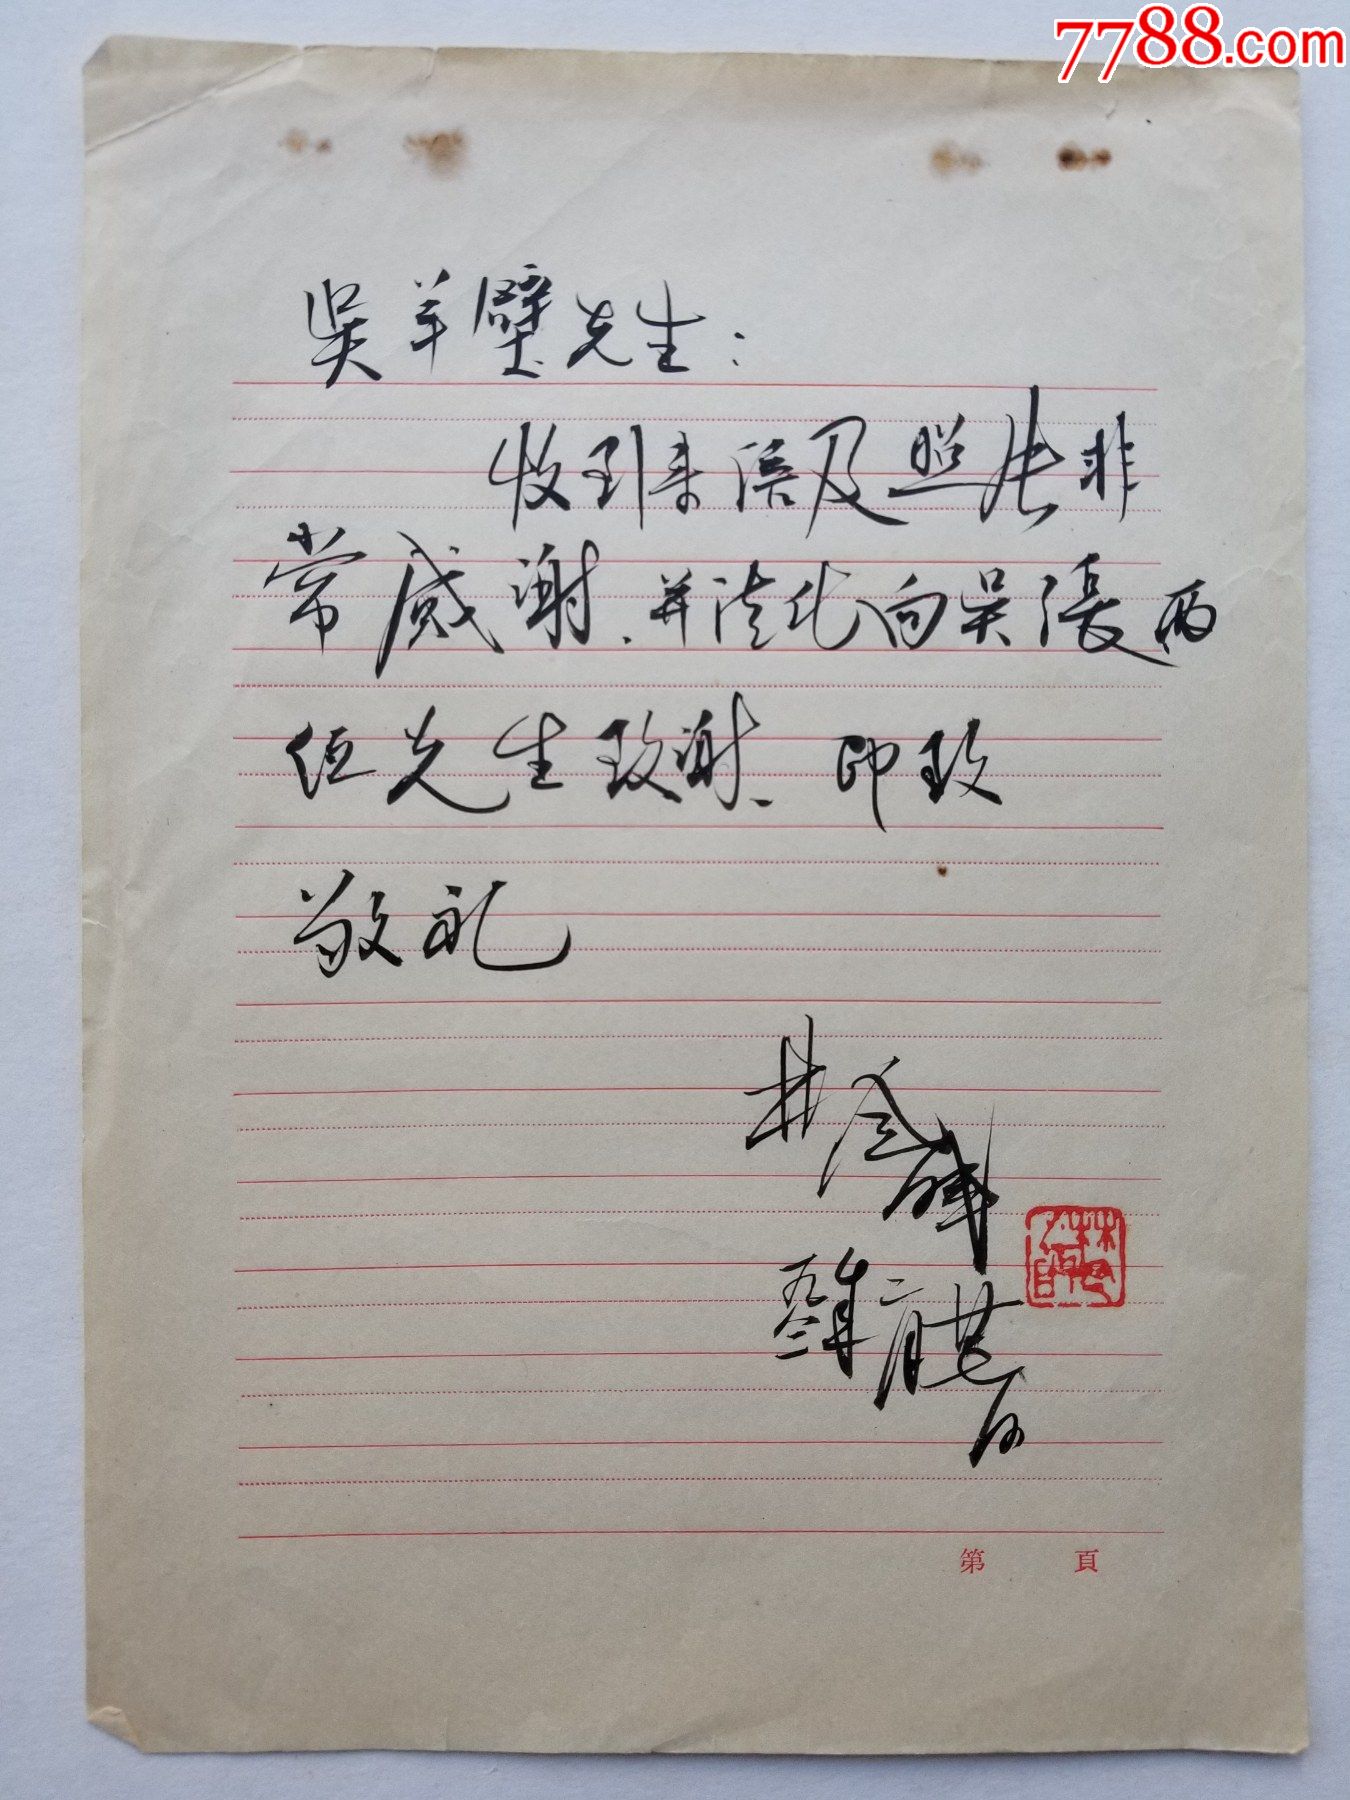 7788.com
吳羊璧先生：
收到来信及照片非
常感谢、并请代向吳張两
位先生致谢、即致
敬礼
林
年二月
日
第 頁